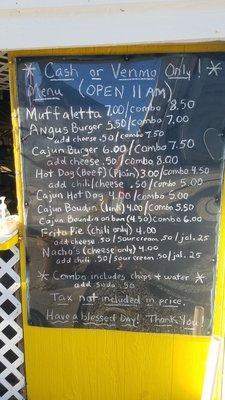 * Cash or Venmo Only! *
Menu (OPEN 11AM)
Muffaletta 7.00/combo 8.50
Angus Burger 5.50/combo 7.00
add cheese .50/combo 7.50
Cajun Burger 6.00/combo 7.50
add cheese .50/combo 8.00
Hot Dog (Beef) (Plain) 3.00/combo 4.50
add chili/cheese .50/combo 5.00
Cajun Hot Dog 4.00/combo 5.00
Cajun Boudin (link) 4.00/combo 5.50
Cajun Boudin on bun (4.50) combo 6.00
Frito Pie (chili only) 4.00
add cheese .50/sour cream .50/jal. .25
Nacho's (cheese only) 4.00
add chili .50/sour cream .50/jal. .25
* Combo includes chips & water *
add soda .50
Tax not included in price.
Have a blessed Day! Thank You!